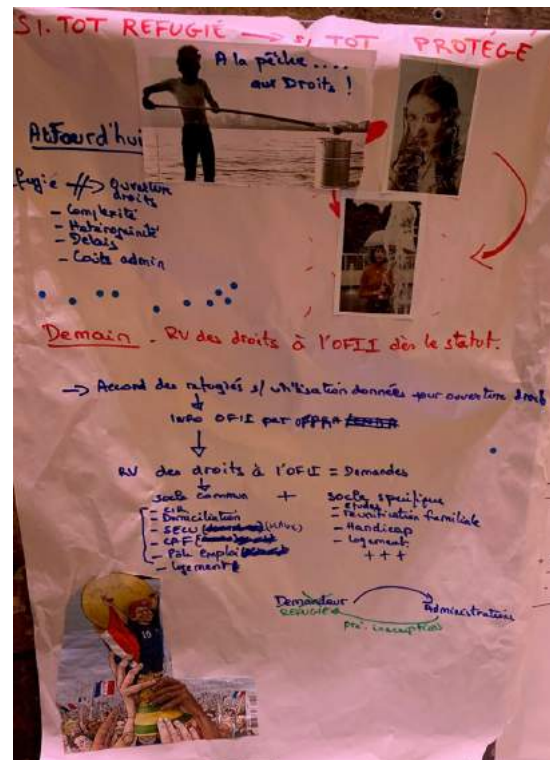 SI. TOT REFUGIÉ → SI TOT PROTÉGÉ
A la pêche....
aux Droits !
Aujourd'hui
fugié ouverture
droits
- Complexité
- Hétérogénéité
- Delais
- Coûts admin
Demain - RV des droits à l'OFII dès le statut.
→ Accord des refugiés s/ utilisation données pour ouverture droits
INFO OFII par OFPRA
RV des droits à l'OFII = Demandes
socle commun + socle spécifique
- CIR
- Domiciliation
- SECU
- CAF
- Pôle emploi
- Logement
- études
- réunification familiale
- Handicap
- Logement
+++
Demandeur Administration
REFUGIÉ
pré-inscription
10